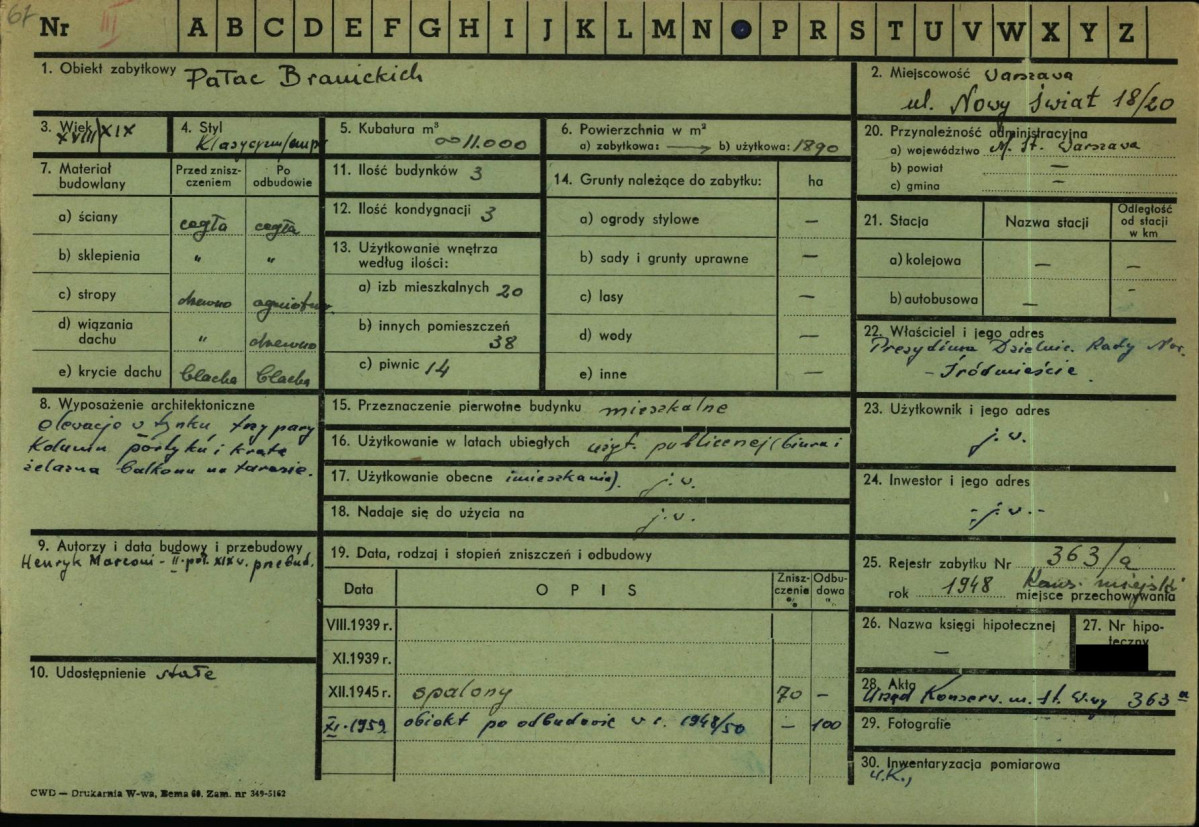 67
Nr III A B C D E F G H I J K L M N P R S T U V W X Y Z
1. Obiekt zabytkowy Pałac Branickich
2. Miejscowość Warszawa
ul. Nowy Świat 18/20
3. Wiek XVIII/XIX
4. Styl
Klasycyzm/empir
5. Kubatura m³
∞ 11.000
6. Powierzchnia w m²
a) zabytkowa: → b) użytkowa: 1890
20. Przynależność administracyjna
a) województwo M. St. Warszawa
b) powiat —
c) gmina —
7. Materiał budowlany
Przed zniszczeniem
Po odbudowie
a) ściany cegła cegła
b) sklepienia „ „
c) stropy drewno ogniotrw.
d) wiązania dachu „ drewno
e) krycie dachu blacha blacha
11. Ilość budynków 3
12. Ilość kondygnacji 3
13. Użytkowanie wnętrza
według ilości:
a) izb mieszkalnych 20
b) innych pomieszczeń
38
c) piwnic 14
14. Grunty należące do zabytku: ha
a) ogrody stylowe —
b) sady i grunty uprawne —
c) lasy —
d) wody —
e) inne —
21. Stacja Nazwa stacji Odległość od stacji w km
a) kolejowa — —
b) autobusowa — -
22. Właściciel i jego adres
Prezydium Dzielnic. Rady Nar.
- Śródmieście
8. Wyposażenie architektoniczne
elewacje w tynku, trzy pary
kolumn portyku i krata
żelazna balkonu na tarasie.
15. Przeznaczenie pierwotne budynku mieszkalne
16. Użytkowanie w latach ubiegłych użyt. publicznej (biura i
17. Użytkowanie obecne i mieszkania). j. w.
18. Nadaje się do użycia na j. w.
23. Użytkownik i jego adres
j. w.
24. Inwestor i jego adres
- j. w. -
9. Autorzy i data budowy i przebudowy
Henryk Marconi - II. poł. XIX w. przebud.
19. Data, rodzaj i stopień zniszczeń i odbudowy
Data OPIS Zniszczenie % Odbudowa %
VIII.1939 r.
XI.1939 r.
XII.1945 r. spalony 70 —
XI.1959 obiekt po odbudowie w r. 1948/50 — 100
25. Rejestr zabytku Nr 363/a
rok 1948 Kons. miejski
miejsce przechowywania
26. Nazwa księgi hipotecznej
—
27. Nr hipoteczny
10. Udostępnienie stałe
28. Akta
Urząd Konserw. m. St. W-wy 363 a
29. Fotografie
30. Inwentaryzacja pomiarowa
U.K.,
CWD — Drukarnia W-wa, Bema 60. Zam. nr 349-5162